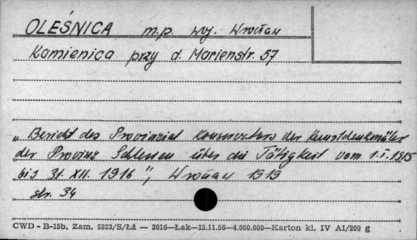 OLEŚNICA m.p. woj. Wrocław
Kamienica przy d. Marienstr. 57
„Bericht des Provinzial Konservators der Kunstdenkmäler
der Provinz Schlesien über die Tätigkeit vom 1.I.1915
bis 31.XII.1916", Wrocław 1919
str. 34
CWD - B-15b. Zam. 5523/S/Łż — 3016—Łak—15.11.56—4.000.000—Karton kl. IV A1/200 g